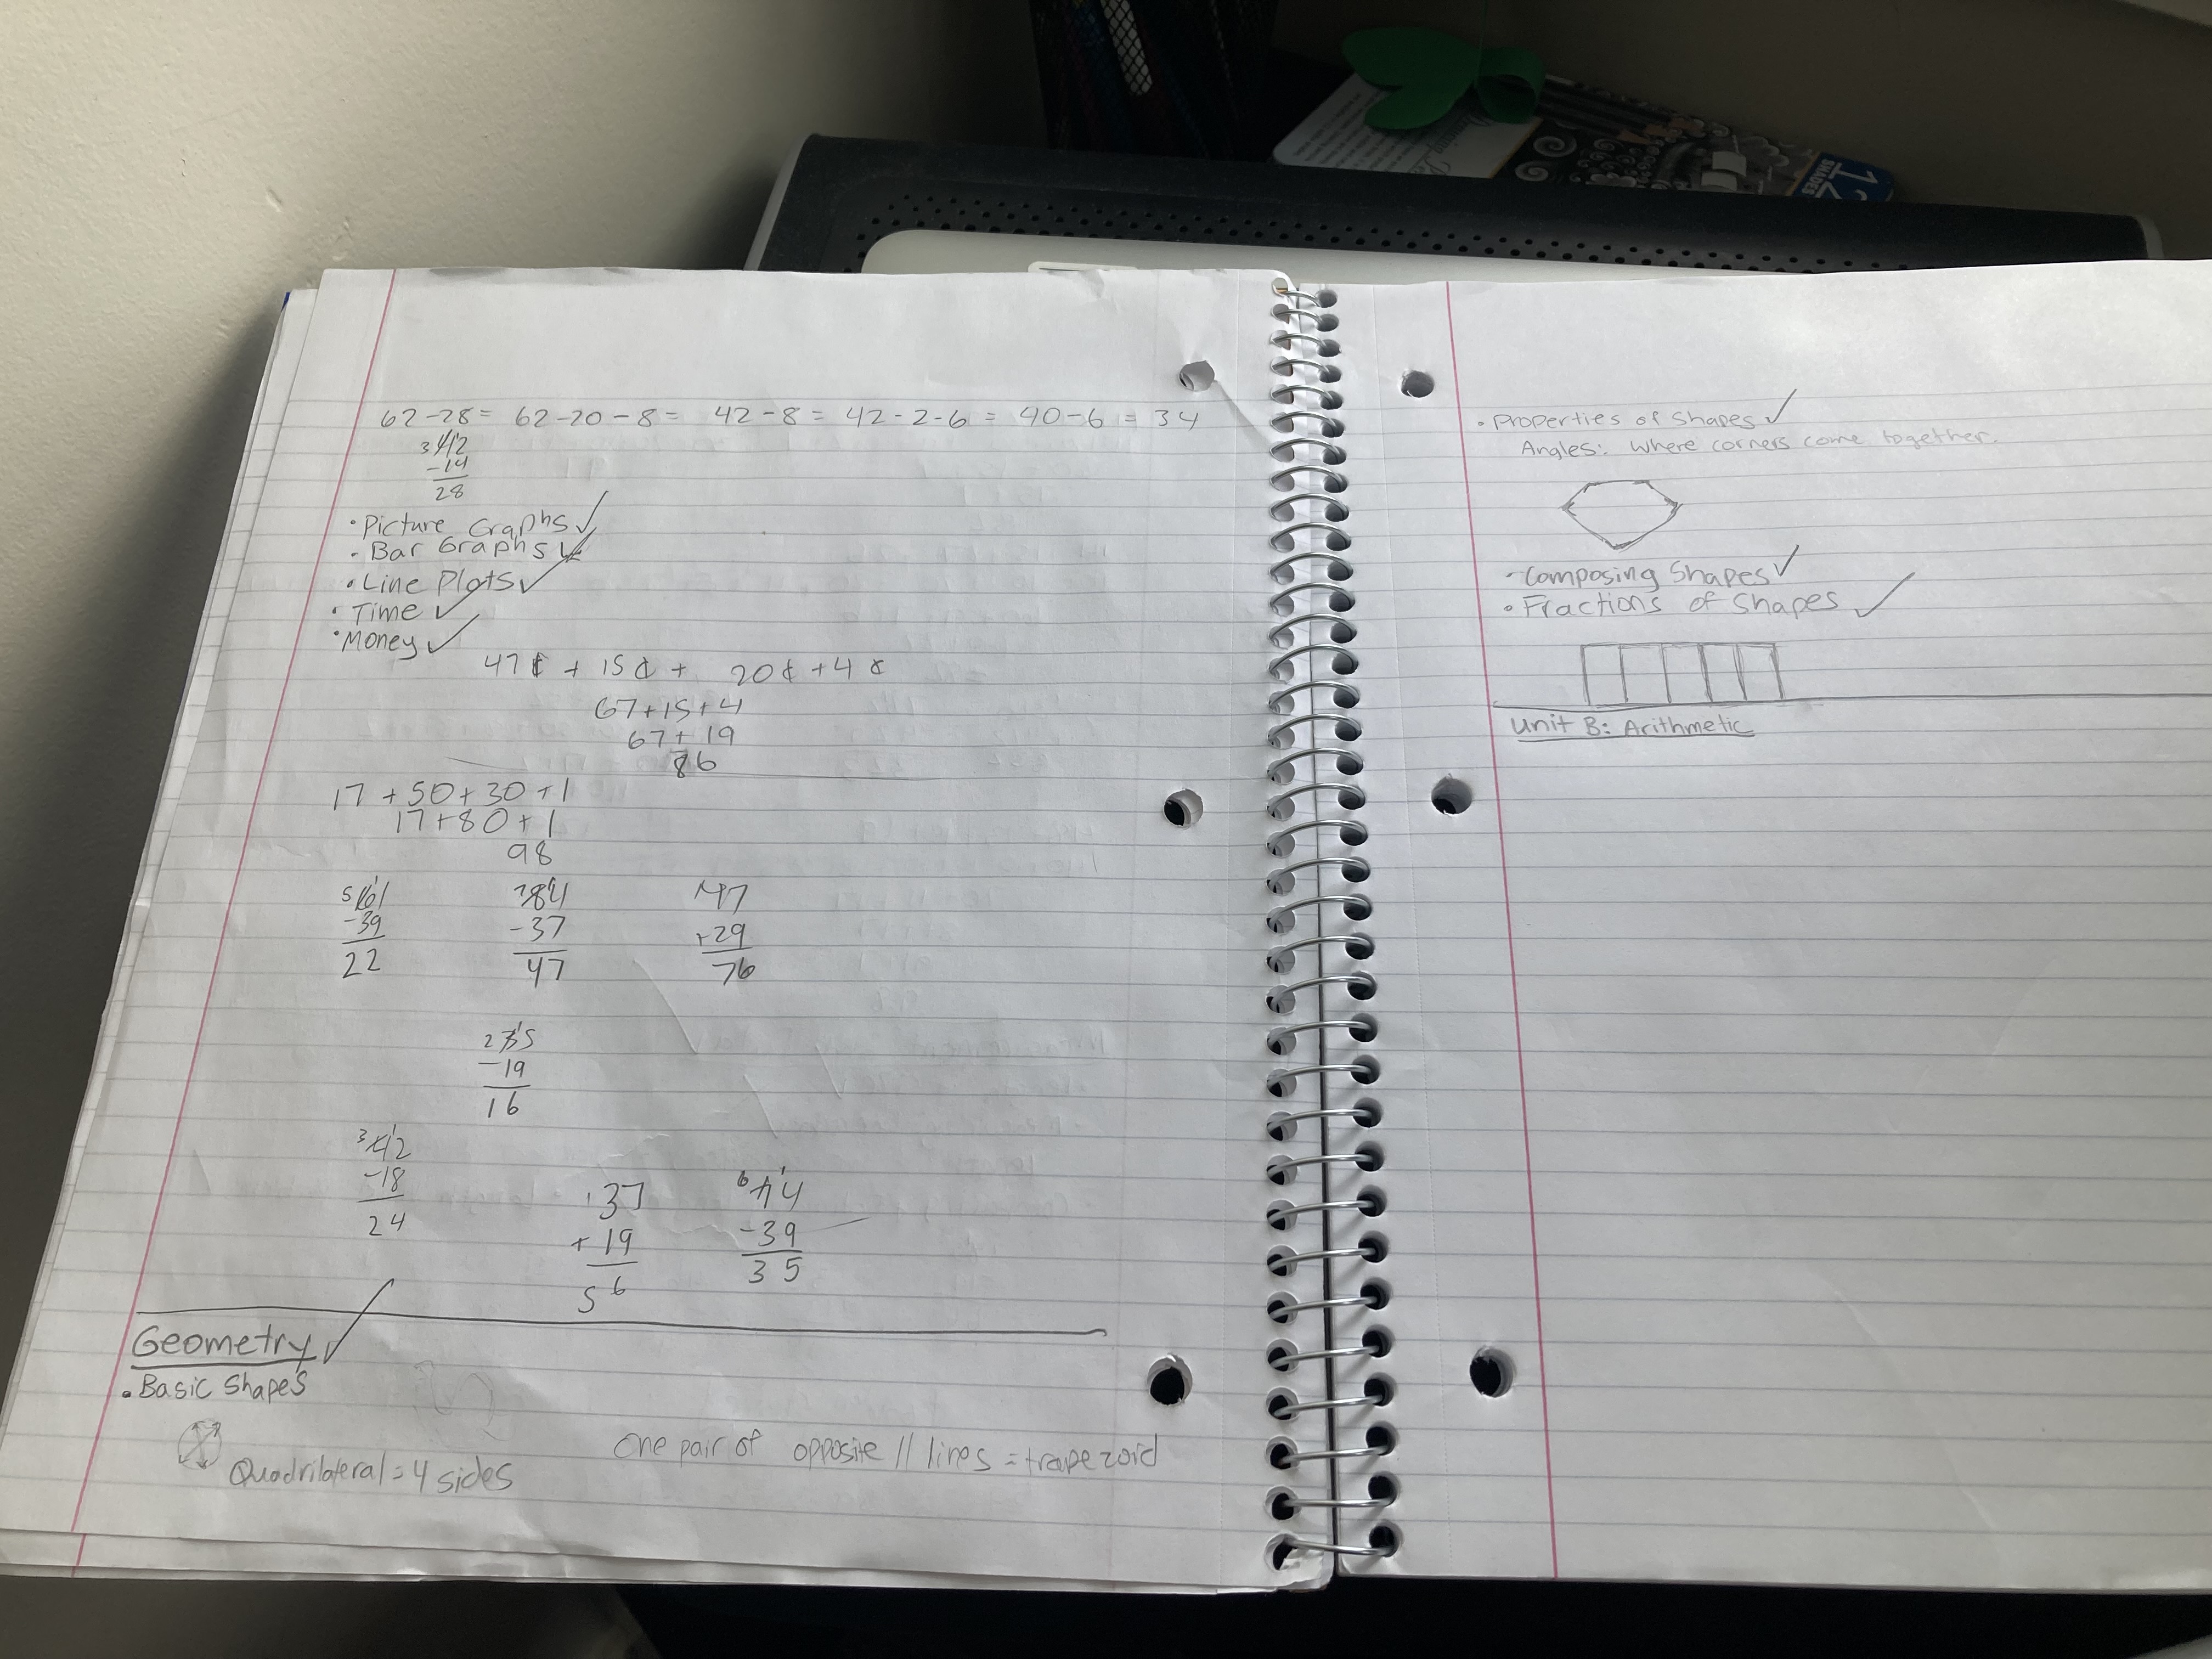 12
SHADES
62-28= 62-20-8= 42-8= 42-2-6= 40-6= 34
3 42
-14
28
• Picture Graphs ✓
• Bar Graphs ✓
• Line Plots ✓
• Time ✓
• Money ✓
47¢ + 15¢ + 20¢ + 4¢
67+15+4
67+19
86
17+50+30+1
17+80+1
98
5 61 7 84 1 47
-39 -37 +29
22 47 76
2 35
-19
16
3 42
-18
24
1 37 6 74
+19 -39
56 35
Geometry ✓
• Basic Shapes
Quadrilateral=4 sides
One pair of opposite // lines = trapezoid
• Properties of Shapes ✓
Angles: Where corners come together.
• Composing Shapes ✓
• Fractions of Shapes ✓
Unit B: Arithmetic